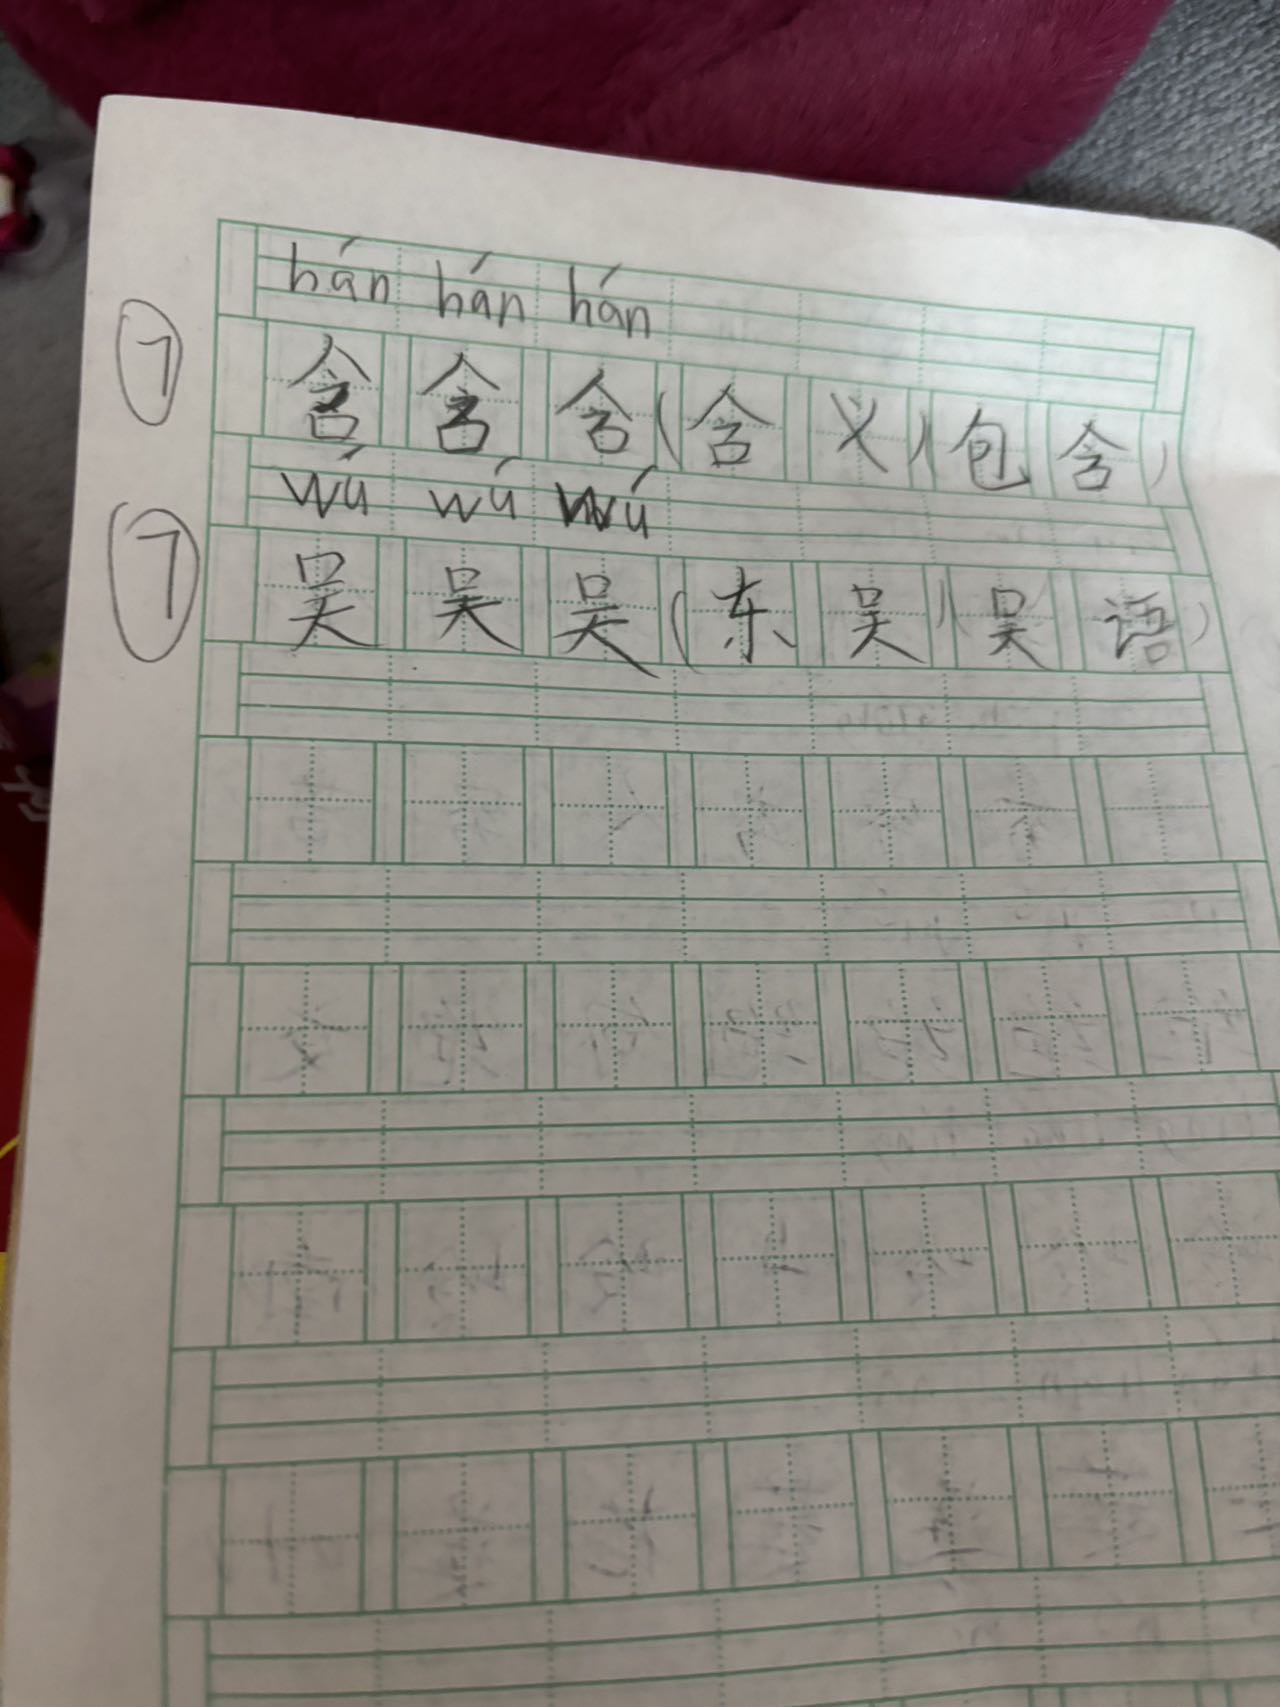 hán hán hán
⑦ 含 含 含 (含 义) (包 含)
wú wú wú
⑦ 吴 吴 吴 (东 吴) (吴 语)